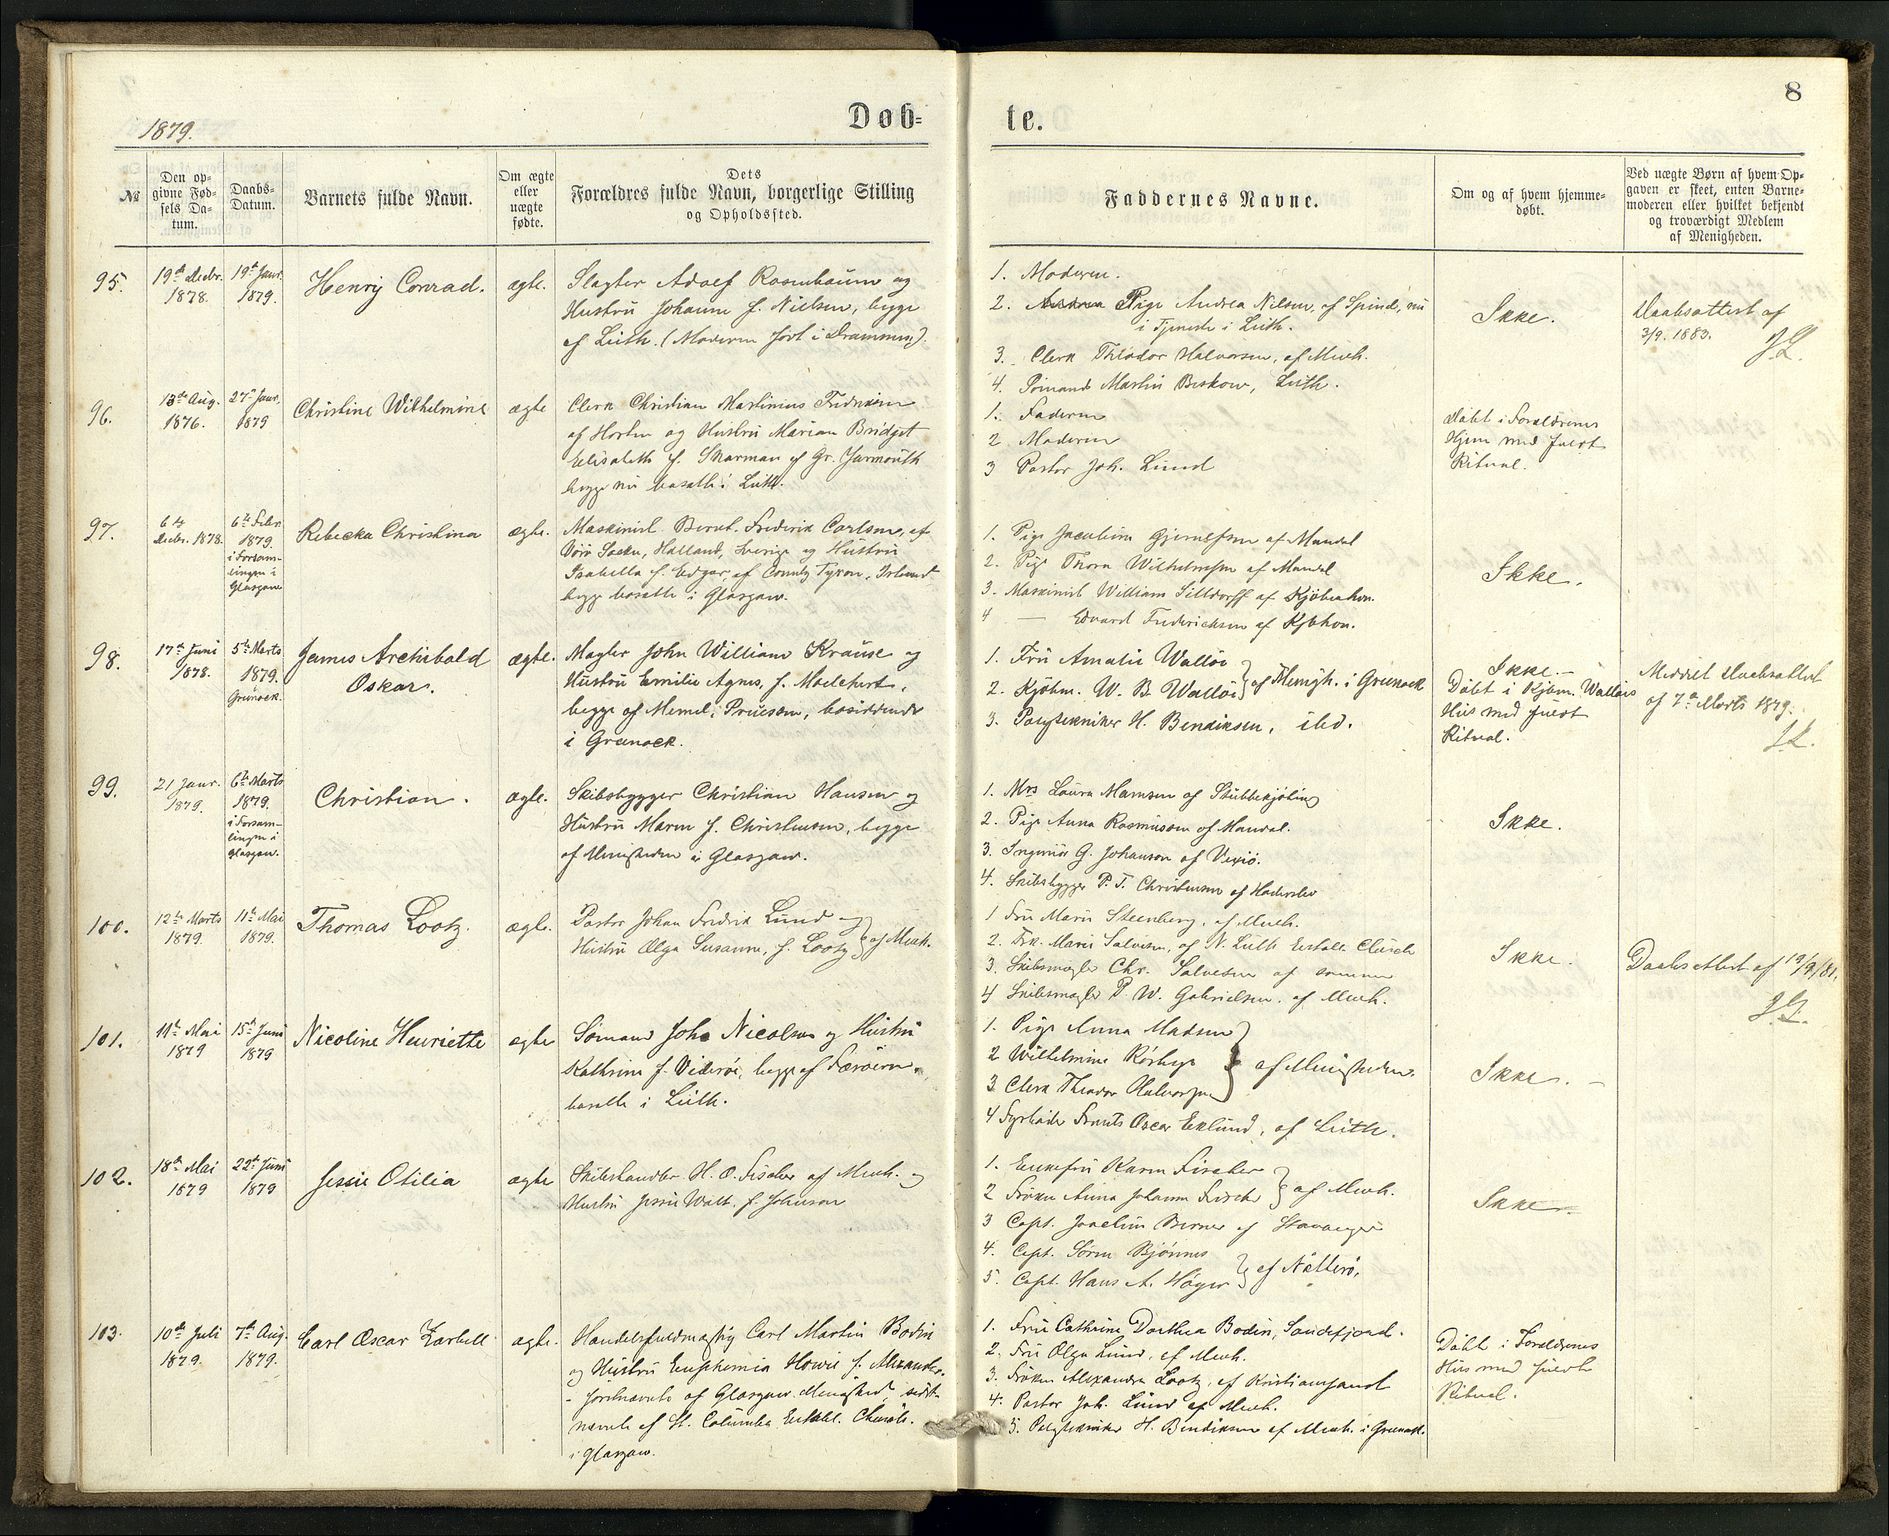 8
1879.
Dob=
te.
No
Den op-
givne Fød-
sels Da-
tum.
Daabs-
Datum.
Barnets fulde Navn.
Om ægte
eller
uægte
fødte.
Dets
Forældres fulde Navn, borgerlige Stilling
og Opholdssted.
Faddernes Navne.
Om og af hvem hjemme-
døbt.
Ved uægte Børn af hvem Op-
gaven er skeet, enten Barne-
moderen eller hvilket bekjendt
og troværdigt Medlem
af Menigheden.
95.
19de Decbr.
1878.
19de Janr.
1879.
Henry Conrad.
ægte.
Slagter Adolf Rosenbaum og
Hustru Johanne f. Nielsen, begge
af Leith. (Moderen født i Drammen).
1. Moderen.
2. Pige Andrea Nilsen, af Spind, nu
i Tjeneste i Leith.
3. Clerk Theodor Halvorsen, af Mnh.
4. Sømand Martin Beskow, Leith.
Ikke.
Daabsattest af
3/9. 1883.
JL.
96.
13de Aug.
1876.
27de Janr.
1879
Christine Wilhelmine
ægte
Clerk Christian Martinius Fredriksen
af Horten og Hustru Marian Bridget
Elisabeth f. Sharman af Gr. Yarmouth
begge nu bosatte i Leith.
1. Faderen
2. Moderen
3 Pastor Joh. Lund
Døbt i Forældrenes
Hjem med fuldt
Ritual.
97.
6te
Decbr. 1878.
6te Febr.
1879.
i Forsam-
lingen i
Glasgow
Rebecka Christina
ægte.
Maskinist Bernt. Frederik Carlsen, af
Sverige og Hustru
Isabella f. Edgar, af County Tyron, Irland
begge bosatte i Glasgow.
1. Pige Jacobine af Mandal
2. Pige Thora Wilhelmsen af Mandal
3. Maskinist William af Kjøbenhvn.
4 — Edvard Frederichsen af Kjbhvn.
Ikke.
98.
17de Juni
1878.
5te Marts
1879.
Greenock.
James Archibald
Oskar.
ægte.
Mægler John William Krause og
Hustru Emilie Agnes, f. Moelchert,
begge af Memel, Preussen, bosiddende
i Greenock.
1. Fru Amalie Walløe
2. Kjøbm. W. B. Walløe } af Menigh. i Greenock
3. Polytekniker H. Bendiksen, ibd.
Ikke. -
Døbt i Kjøbm. Walløes
Hus med fuldt
Ritual.
Meddelt Daabsattest
af 7de Marts 1879.
JL.
99.
21 Janr.
1879.
6te Marts
1879.
i Forsam-
lingen i
Glasgow.
Christian.
ægte.
Skibsbygger Christian Hansen og
Hustru Maren f. Christensen, begge
af Menigheden i Glasgow.
1. Mrs Laura Hansen af Stubbekjøbing
2. Pige Anna Rasmussen af Mandal.
3. Ingeniør G. Johanson af Vexiö.
4. Skibsbygger P. T. Christensen af Haderslev
Ikke.
100.
12te Marts
1879.
11te Mai
1879.
Thomas Lootz.
ægte.
Pastor Johan Fredrik Lund og
Hustru Olga Susanne, f. Lootz } af Mnh.
1 Fru Marie Steenberg, af Mnh.
2. Frk. Marie Salvesen, af N. Leith Establ. Church
3. Skibsmægler Chr. Salvesen af samme
4 Skibsmægler P. W. Gabrielsen. af Mnh.
Ikke.
Daabsattest af 19/9/81.
JL.
101.
11te Mai
1879
15de Juni
1879
Nicoline Henriette
ægte
Sømand Joh. Nicolsen og Hustru
Kathrine f. Viderøe, begge af Færøerne,
bosatte i Leith.
1. Pige Anna Madsen
2 Wilhelmine
3. Clerk Theodor Halvorsen } af Menigheden.
4 Fyrbøder Oscar Eklund, af Leith.
Ikke. -
102.
18de Mai
1879
22de Juni
1879
Jessie Otilia
ægte
Skibshandler H. O. Fischer af Mnh. og
Hustru Jessie Watt. f. Johanson
1. Enkefru Karen Fischer
2 Frøken Anna Johanne Fischer } af Mnh.
3 Capt. Joachim Berner af Stavanger
4. Capt. Søren Bjønnes
5. Capt. Hans A. Høyer } af Nøtterø.
Ikke.
103.
10de Juli
1879.
7de Aug.
1879.
Carl Oscar Zarbell
ægte.
Handelsfuldmægtig Carl Martin Bodin
og Hustru Euphemia Howie f. Alexander.
- førstnævnte af Glasgow Menighed, sidst-
nævnte af St. Columba Establ. Church.
i Glasgow.
1. Fru Cathrine Dorthea Bodin, Sandefjord.
2. Fru Olga Lund, af Mnh.
3. Frøken Alexandra Lootz, af Kristianssand
4. Pastor Joh. Lund af Mnh.
5. Polytekniker H. Bendiksen af Mnh. i Greenock.
Døbt i Forældrenes
Hus med fuldt
Ritual.